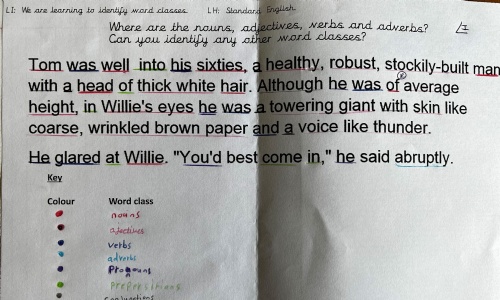 LI: We are learning to identify word classes. LH: Standard English.
Where are the nouns, adjectives, verbs and adverbs?
Can you identify any other word classes?
Tom was well into his sixties, a healthy, robust, stockily-built man
with a head of thick white hair. Although he was of average
height, in Willie's eyes he was a towering giant with skin like
coarse, wrinkled brown paper and a voice like thunder.
He glared at Willie. "You'd best come in," he said abruptly.
Key
Colour Word class
nouns
adjectives
verbs
adverbs
Pronouns
prepositions
conjunctions